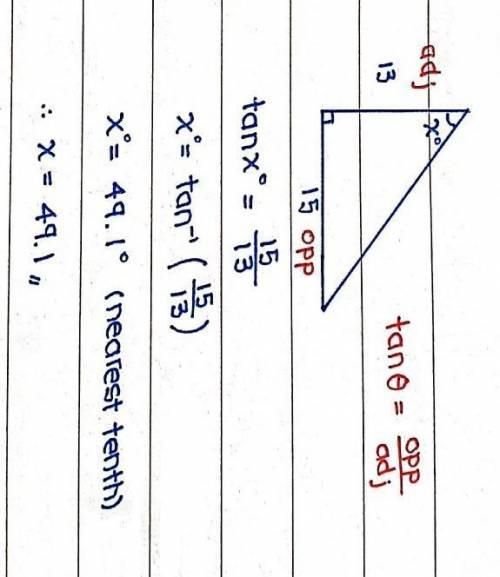 adj
13
x°
15 opp
tanθ = opp/adj
tan x° = 15/13
x° = tan⁻¹ (15/13)
x° = 49.1° (nearest tenth)
∴ x = 49.1 〃